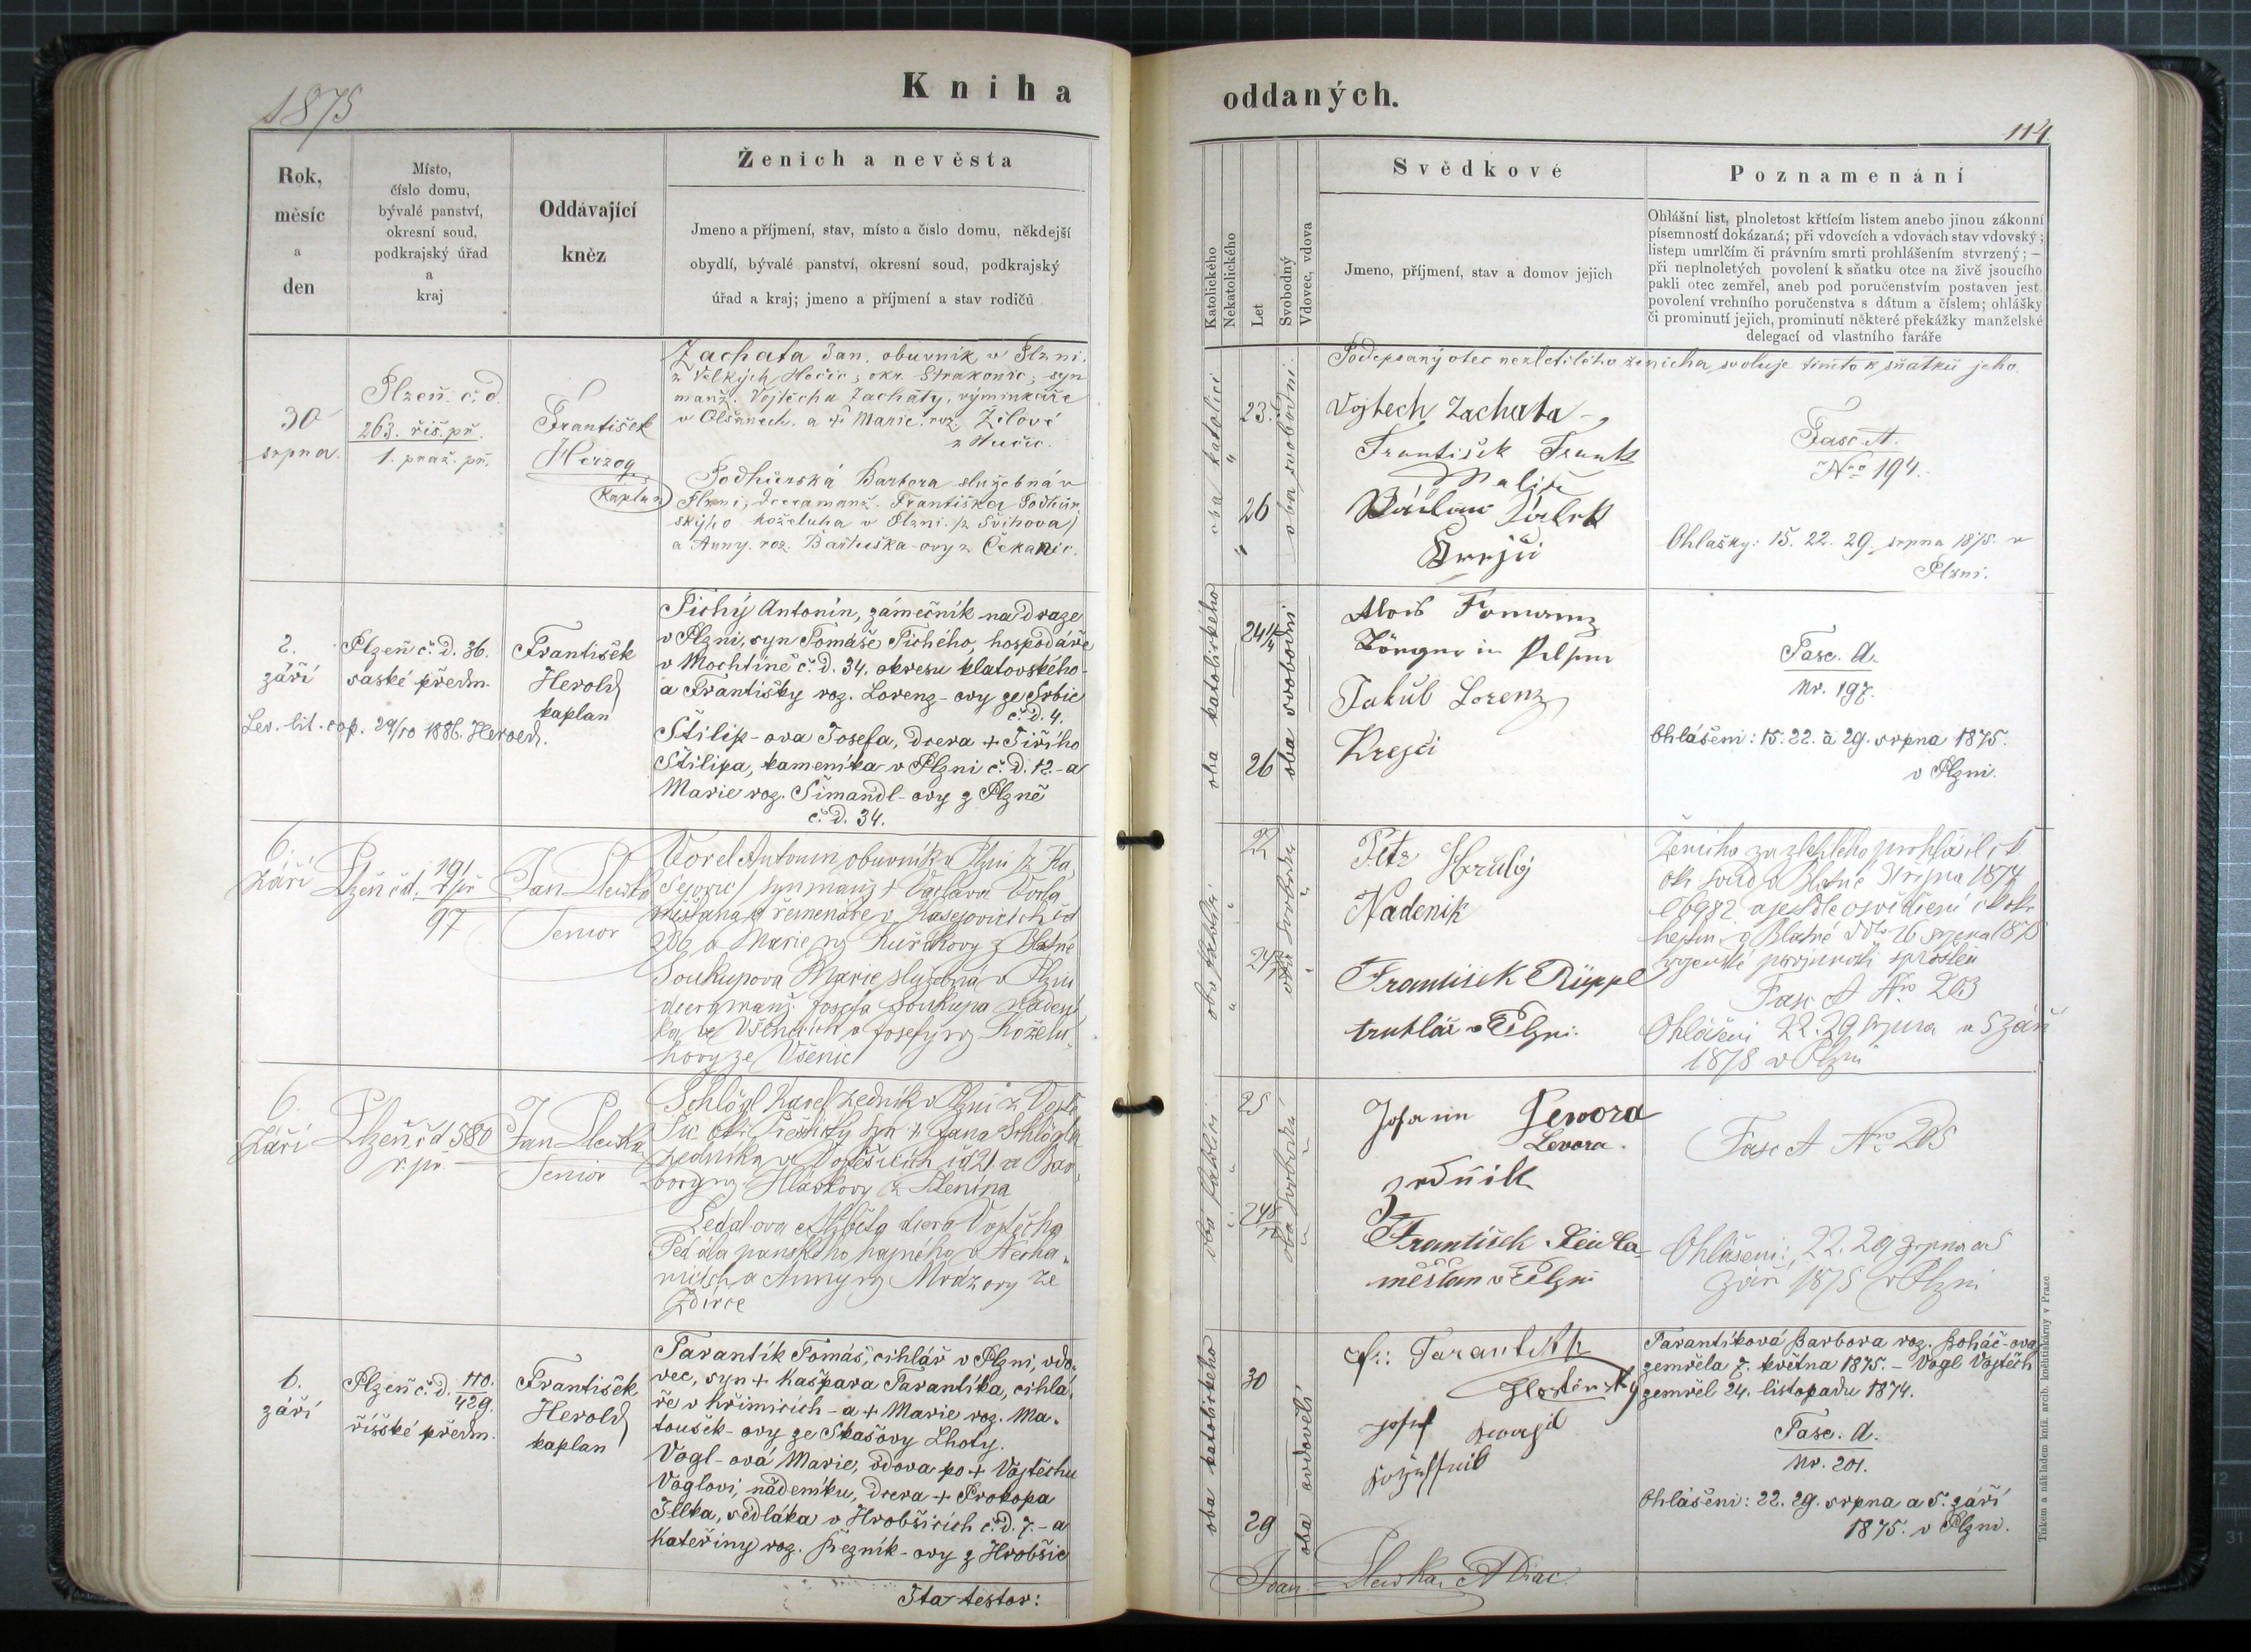 1875
Kniha
oddaných.
114
Rok,
měsíc
a
den
Místo,
číslo domu,
bývalé panství,
okresní soud,
podkrajský úřad
a
kraj
Oddávající
kněz
Ženich a nevěsta
Jmeno a příjmení, stav, místo a číslo domu, někdejší
obydlí, bývalé panství, okresní soud, podkrajský
úřad a kraj; jmeno a příjmení a stav rodičů
Katolického
Nekatolického
Let
Svobodný
Vdovec, vdova
Svědkové
Jmeno, příjmení, stav a domov jejich
Poznamenání
Ohlášní list, plnoletost křtícím listem anebo jinou zákonní
písemností dokázaná; při vdovcích a vdovách stav vdovský;
listem umrlčím či právním smrti prohlášením stvrzený; —
při neplnoletých povolení k sňatku otce na živě jsoucího
pakli otec zemřel, aneb pod poručenstvím postaven jest.
povolení vrchního poručenstva s dátum a číslem; ohlášky
či prominutí jejich, prominutí některé překážky manželské
delegací od vlastního faráře
30
srpna.
Plzeň. č. d.
263. řiš. př.
1. praž. př.
František
Herzog
kaplan
Zachata Jan. obuvník, v Plzni.
okr. Strakonic; syn
manž. Vojtěcha Zachaty, výminkáře
v Olšanech. a † Marie. roz.
Podhůrská Barbora služebná v
Plzni, dcera manž. Františka Podhůr-
ského koželuha v Plzni. (z Švihova)
a Anny. roz. Bartuška-ovy z Čekanic.
oba katolíci
23.
26
oba svobodni
Podepsaný otec nezletilého ženicha, svoluje tímto k sňatku jeho.
Vojtech Zachata
František Frank
Václav
Krejčí
Fasc. A.
Nro 194.
Ohlašky: 15. 22. 29. srpna 1875. v
Plzni.
2.
září
Plzeň č. d. 36.
saské předm.
František
Herold
kaplan
Lev. lit. cop. 29/10 1886. Herold.
Tichý Antonín, zámečník na draze
v Plzni, syn Tomáše Tichého, hospodáře
v Mochtíně č. d. 34. okresu klatovského-
a Františky roz. Lorenz-ovy ze Srbic
č. d. 4.
Štilip-ova Josefa, dcera † Jiřího
Štilipa, kameníka v Plzni č. d. 12.-a
Marie roz. Šimandl-ovy z Plzně
č. d. 34.
oba katolického
24 1/4
26
oba svobodni
Alois
in Pilsen
Jakub Lorenz
Krejči
Fasc. A.
Nr. 197.
Ohlášeni: 15. 22. a 29. srpna 1875.
v Plzni.
6.
září
Plzeň čd. 191
97
Jan
Senior
Vorel Antonin obuvník v Plzni (z Ka-
sejovic) syn manž † Václava Vorla
měšťana a řemenáře v Kasejovicích čd
a Marie roz Kuřákovy z Blatné
Soukupova Marie služebná v Plzni
dcera manž. Josefa Soukupa nádení-
ka ve Všenicích a Josefy roz Koželu-
hovy ze Všenic
22
Petr Hrubý
Nádeník
František Rüppl
truhlář v Plzni.
Ženicha za zletilého prohlásil ck
okr. soud v Blatné 31 srpna 1874
26 srpna 1875
Fasc A Nro 203
Ohlášeni 22. 29 srpna a 5 září
1875 v Plzni
6.
Září
Plzeň čd 580
ř. př.
Jan
Senior
Schlögl Karel zedník v Plzni z
syn † Jana Schlögla
zedníka ve čd 21. a Bar-
bory roz. Hlavkovy z
Alžběta dcera Vojtěcha
panského hajného v Necha-
nicích a Anny roz Mrázovy ze
Ždírce
25
Johann Lewora
Levora.
zedník
František
měšťan v Plzni
Fasc A Nro 205
Ohlášeni: 22. 29 srpna a 5
září 1875 v Plzni
6.
září
Plzeň č. d. 110.
429.
říšské předm.
František
Herold
kaplan
Tarantík Tomáš, cihlář v Plzni, vdo-
vec, syn † Kašpara Tarantíka, cihlá-
ře v Křimicích-a † Marie roz. Ma-
toušek-ovy ze Skašovy Lhoty.
Vogl-ová Marie, vdova po † Vojtěchu
Voglovi, nádeníku, dcera † Prokopa
Illka, sedláka v Hrobšicích č. d. 7.-a
Kateřiny roz. Řezník-ovy z Hrobšic
oba katolického
30
29
oba ovdovělí
Fr: Tarantík
Josef
Tarantíková Barbora roz. Boháč-ova
zemřela 7. května 1875. - Vogl Vojtěch
zemřel 24. listopadu 1874.
Fasc. A.
Nr. 201.
Ohlášeni: 22. 29. srpna a 5. září
1875. v Plzni.
Ita testor:
Tiskem a nákladem kníž. arcib. knihtiskárny v Praze